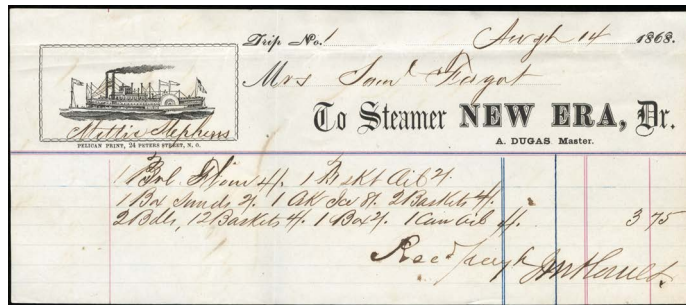 Trip No. 1 Augt 14 1868.
Mrs Saml Fagot
To Steamer NEW ERA, Dr.
A. DUGAS Master.
Mettie Stephens
PELICAN PRINT, 24 PETERS STREET, N. O.
1 Brl. Flour 4/. 1 Bskt 2/.
1 Box Sunds 2/. 1 Ice 8/. 2 Baskets 4/.
2 Bdls, 12 Baskets 4/. 1 Box 2/. 1 Can 4/. 3 75
Recd